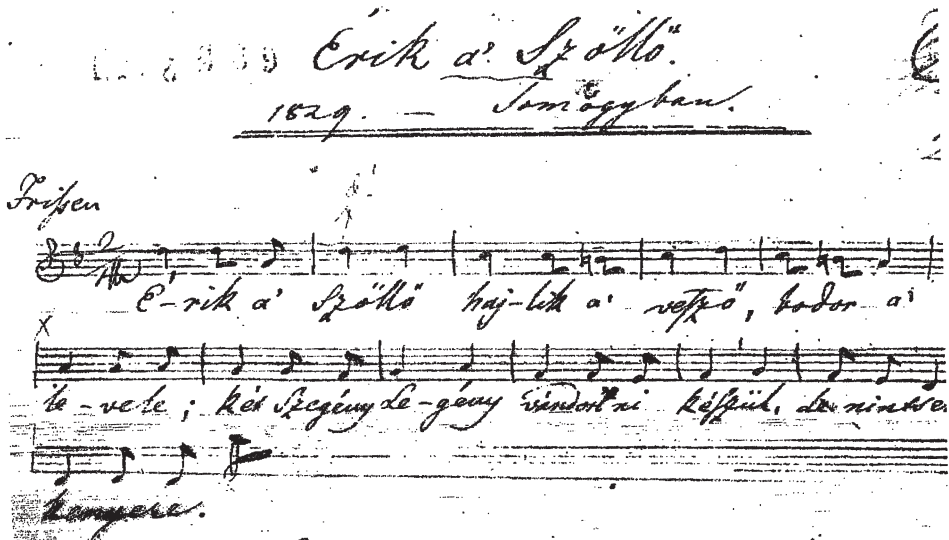 Érik a' Szöllő.
1829. — Somogyban.
Frissen
É-rik a' Szöllő haj-lik a' vessző, bodor a'
le-vele; két Szegény Le-gény ni készül, de nintse
kenyere.